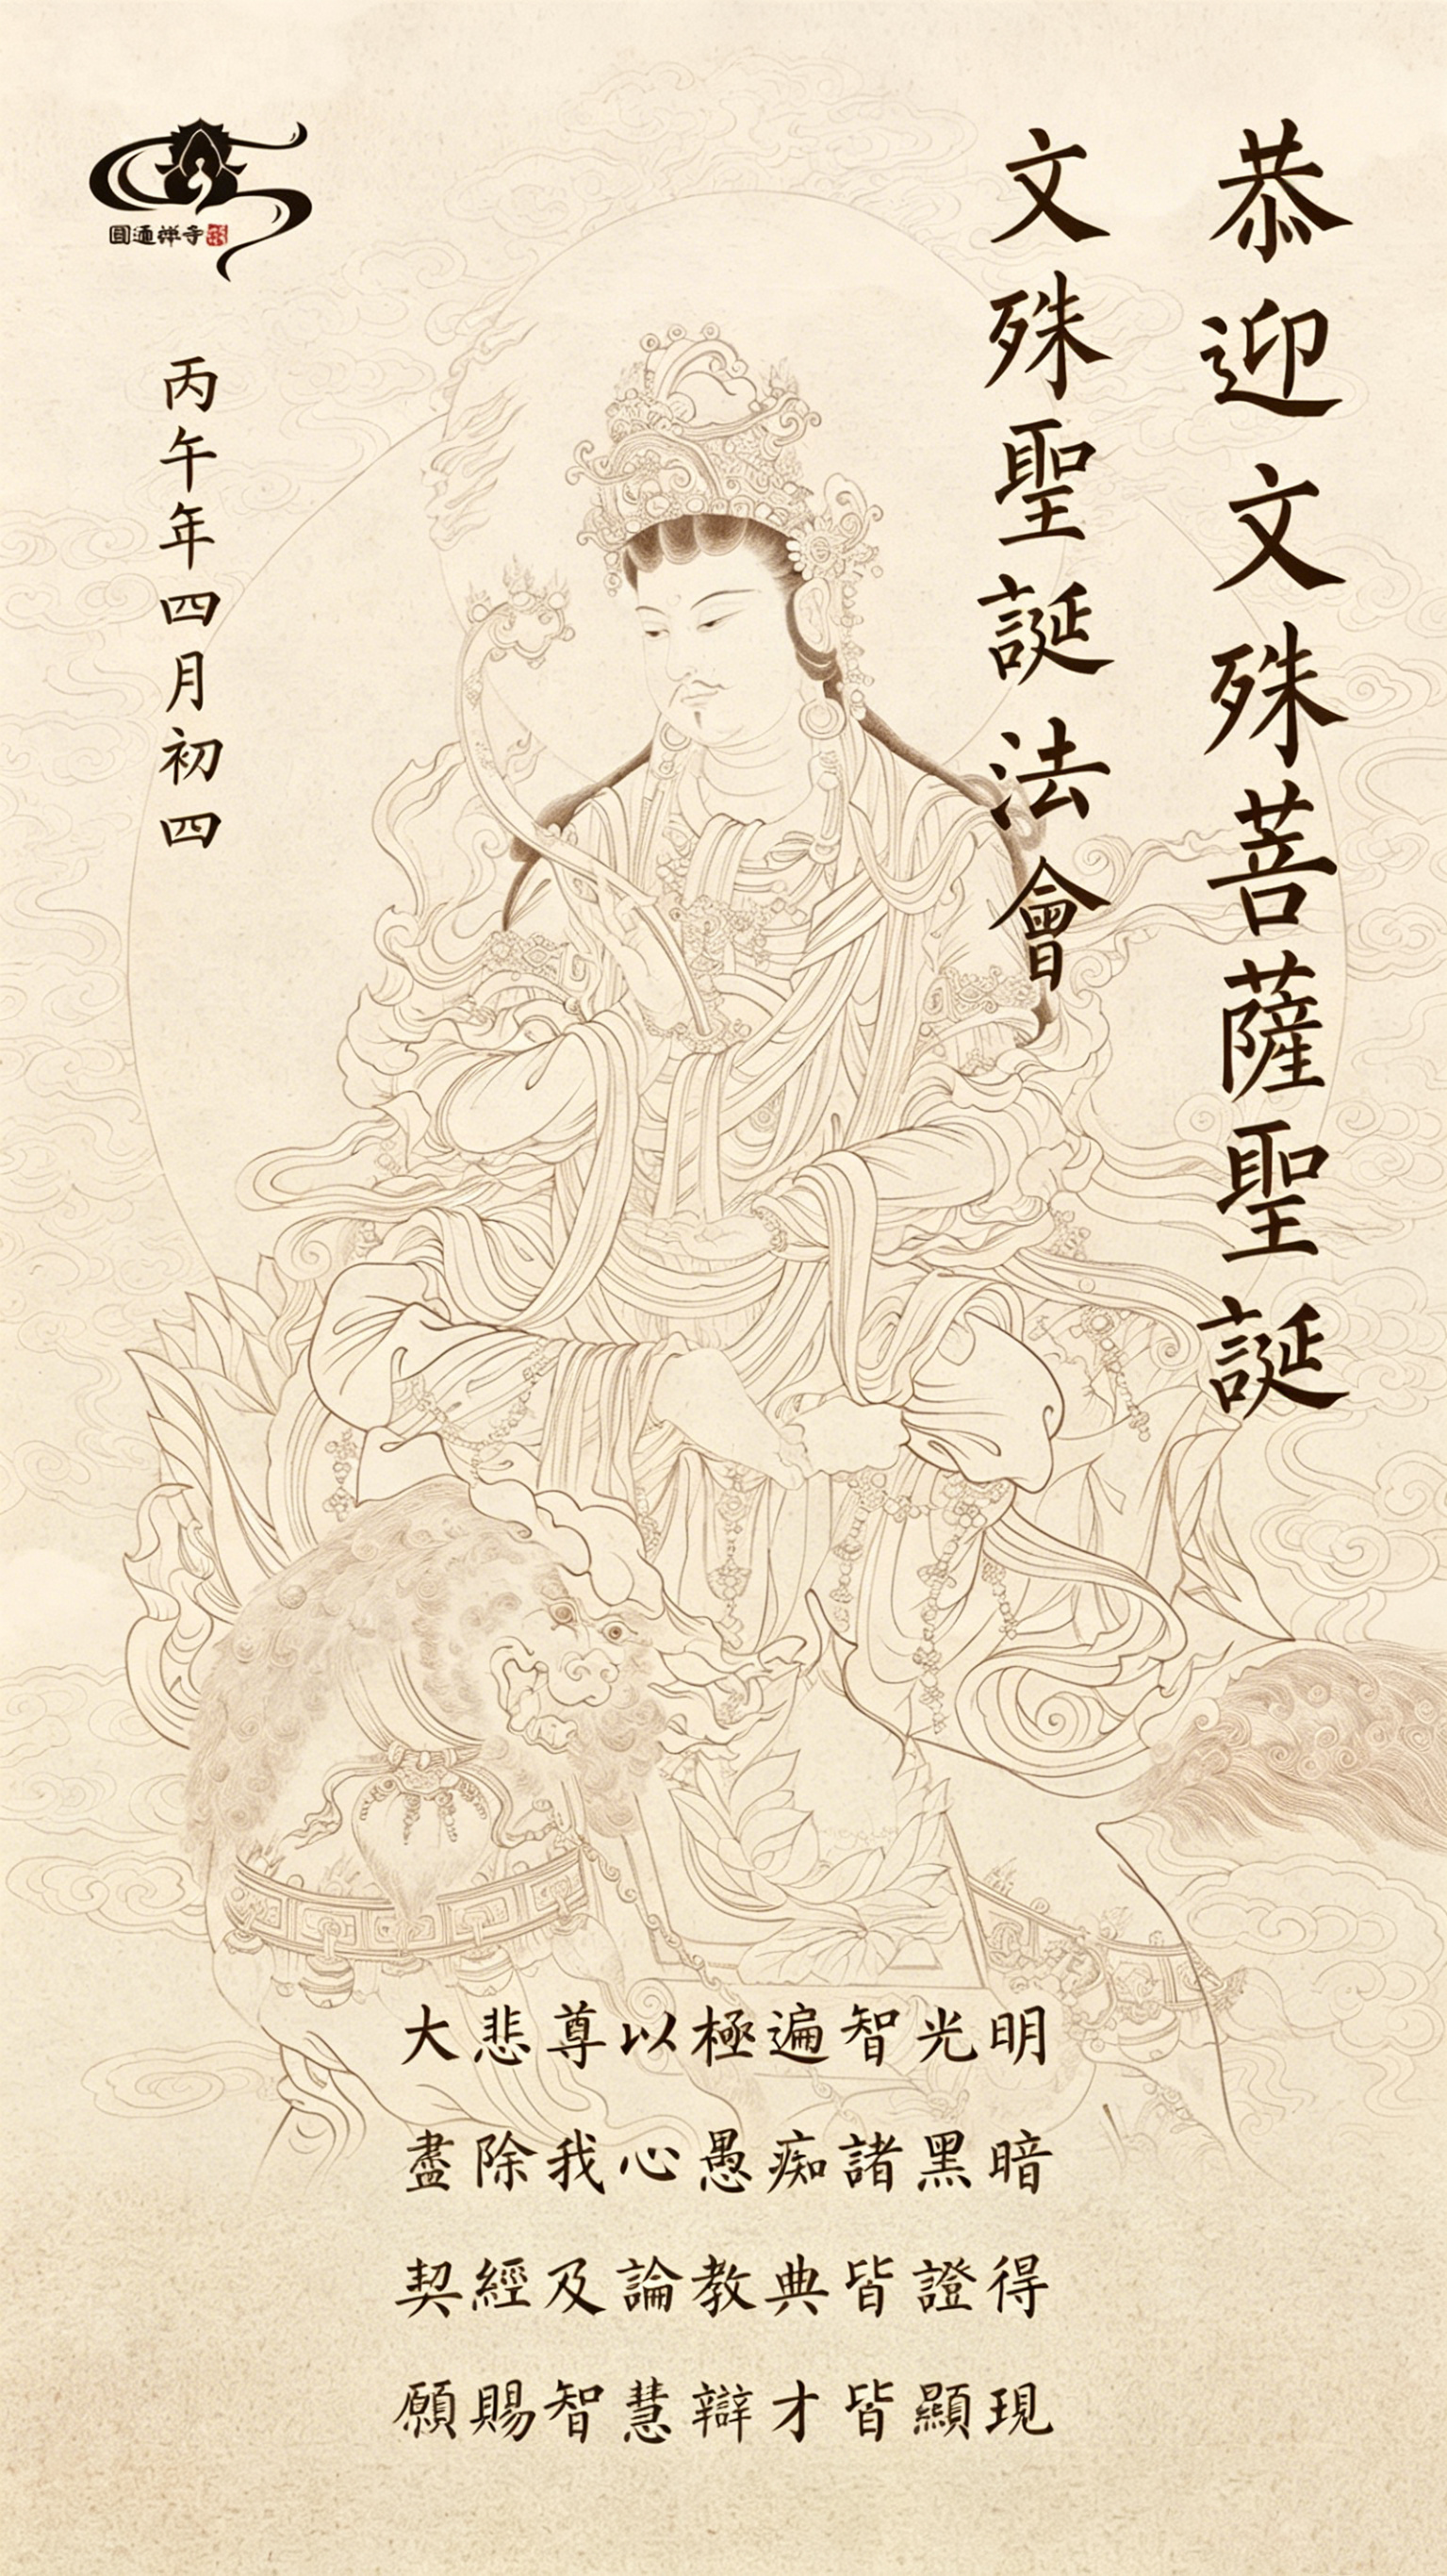 恭迎文殊菩薩聖誕
文殊聖誕法會
圓通禅寺
丙午年四月初四
大悲尊以極遍智光明
盡除我心愚痴諸黑暗
契經及論教典皆證得
願賜智慧辯才皆顯現